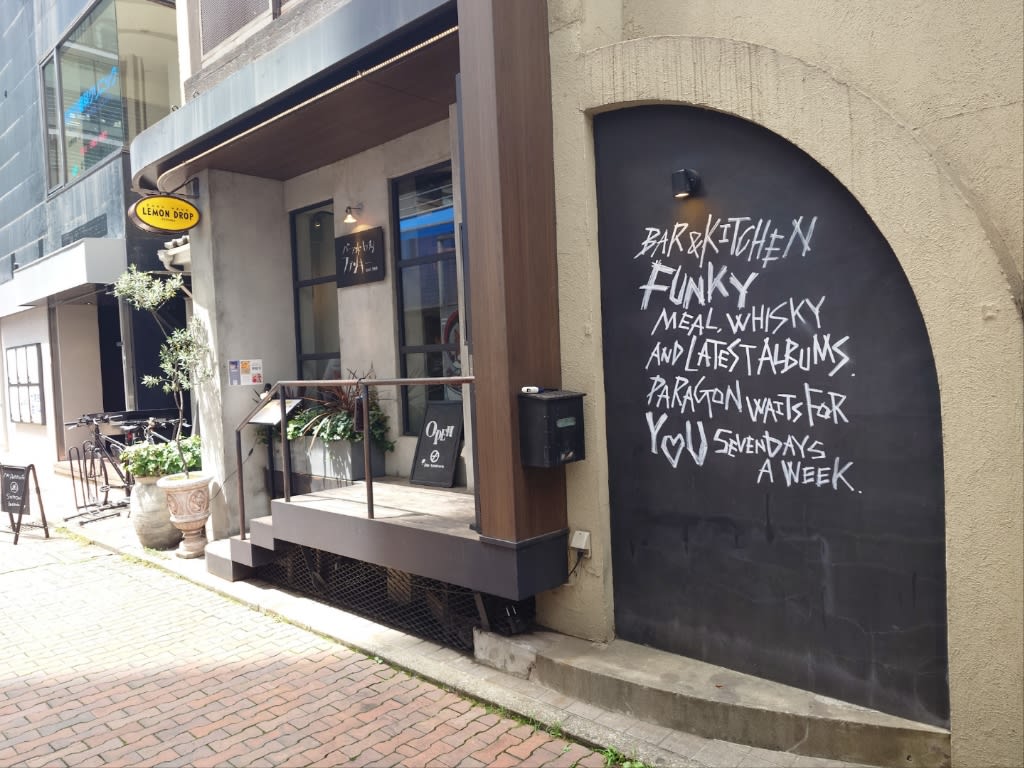 LEMON DROP
OPEN
BAR & KITCHEN
FUNKY
MEAL, WHISKY
AND LATEST ALBUMS.
PARAGON WAITS FOR
YOU SEVEN DAYS
A WEEK.